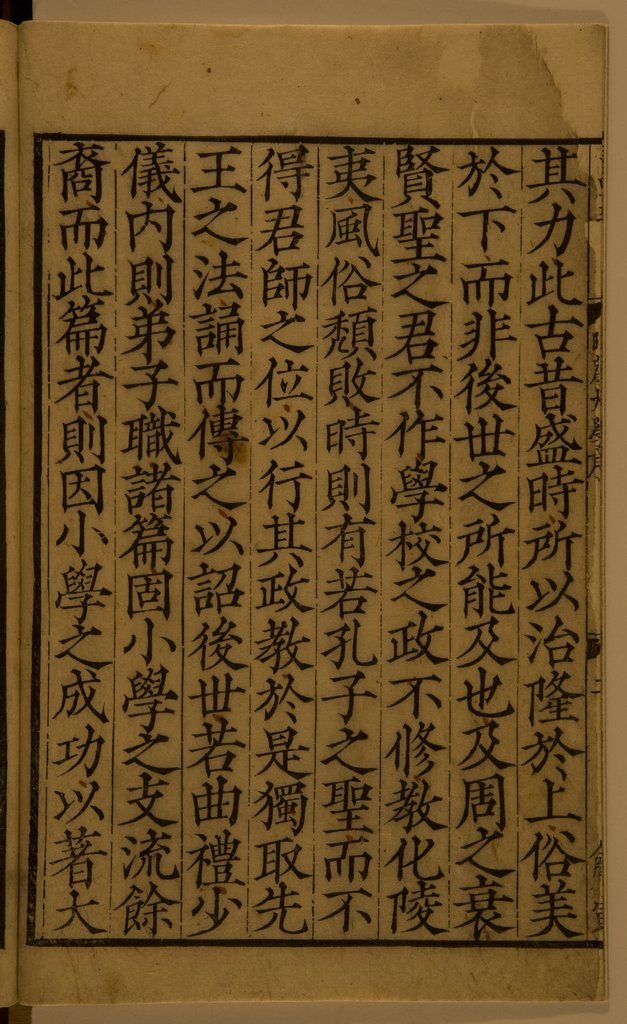 其力此古昔盛時所以治隆於上俗美
於下而非後世之所能及也及周之衰
賢聖之君不作學校之政不修教化陵
夷風俗頹敗時則有若孔子之聖而不
得君師之位以行其政教於是獨取先
王之法誦而傳之以詔後世若曲禮少
儀內則弟子職諸篇固小學之支流餘
裔而此篇者則因小學之成功以著大